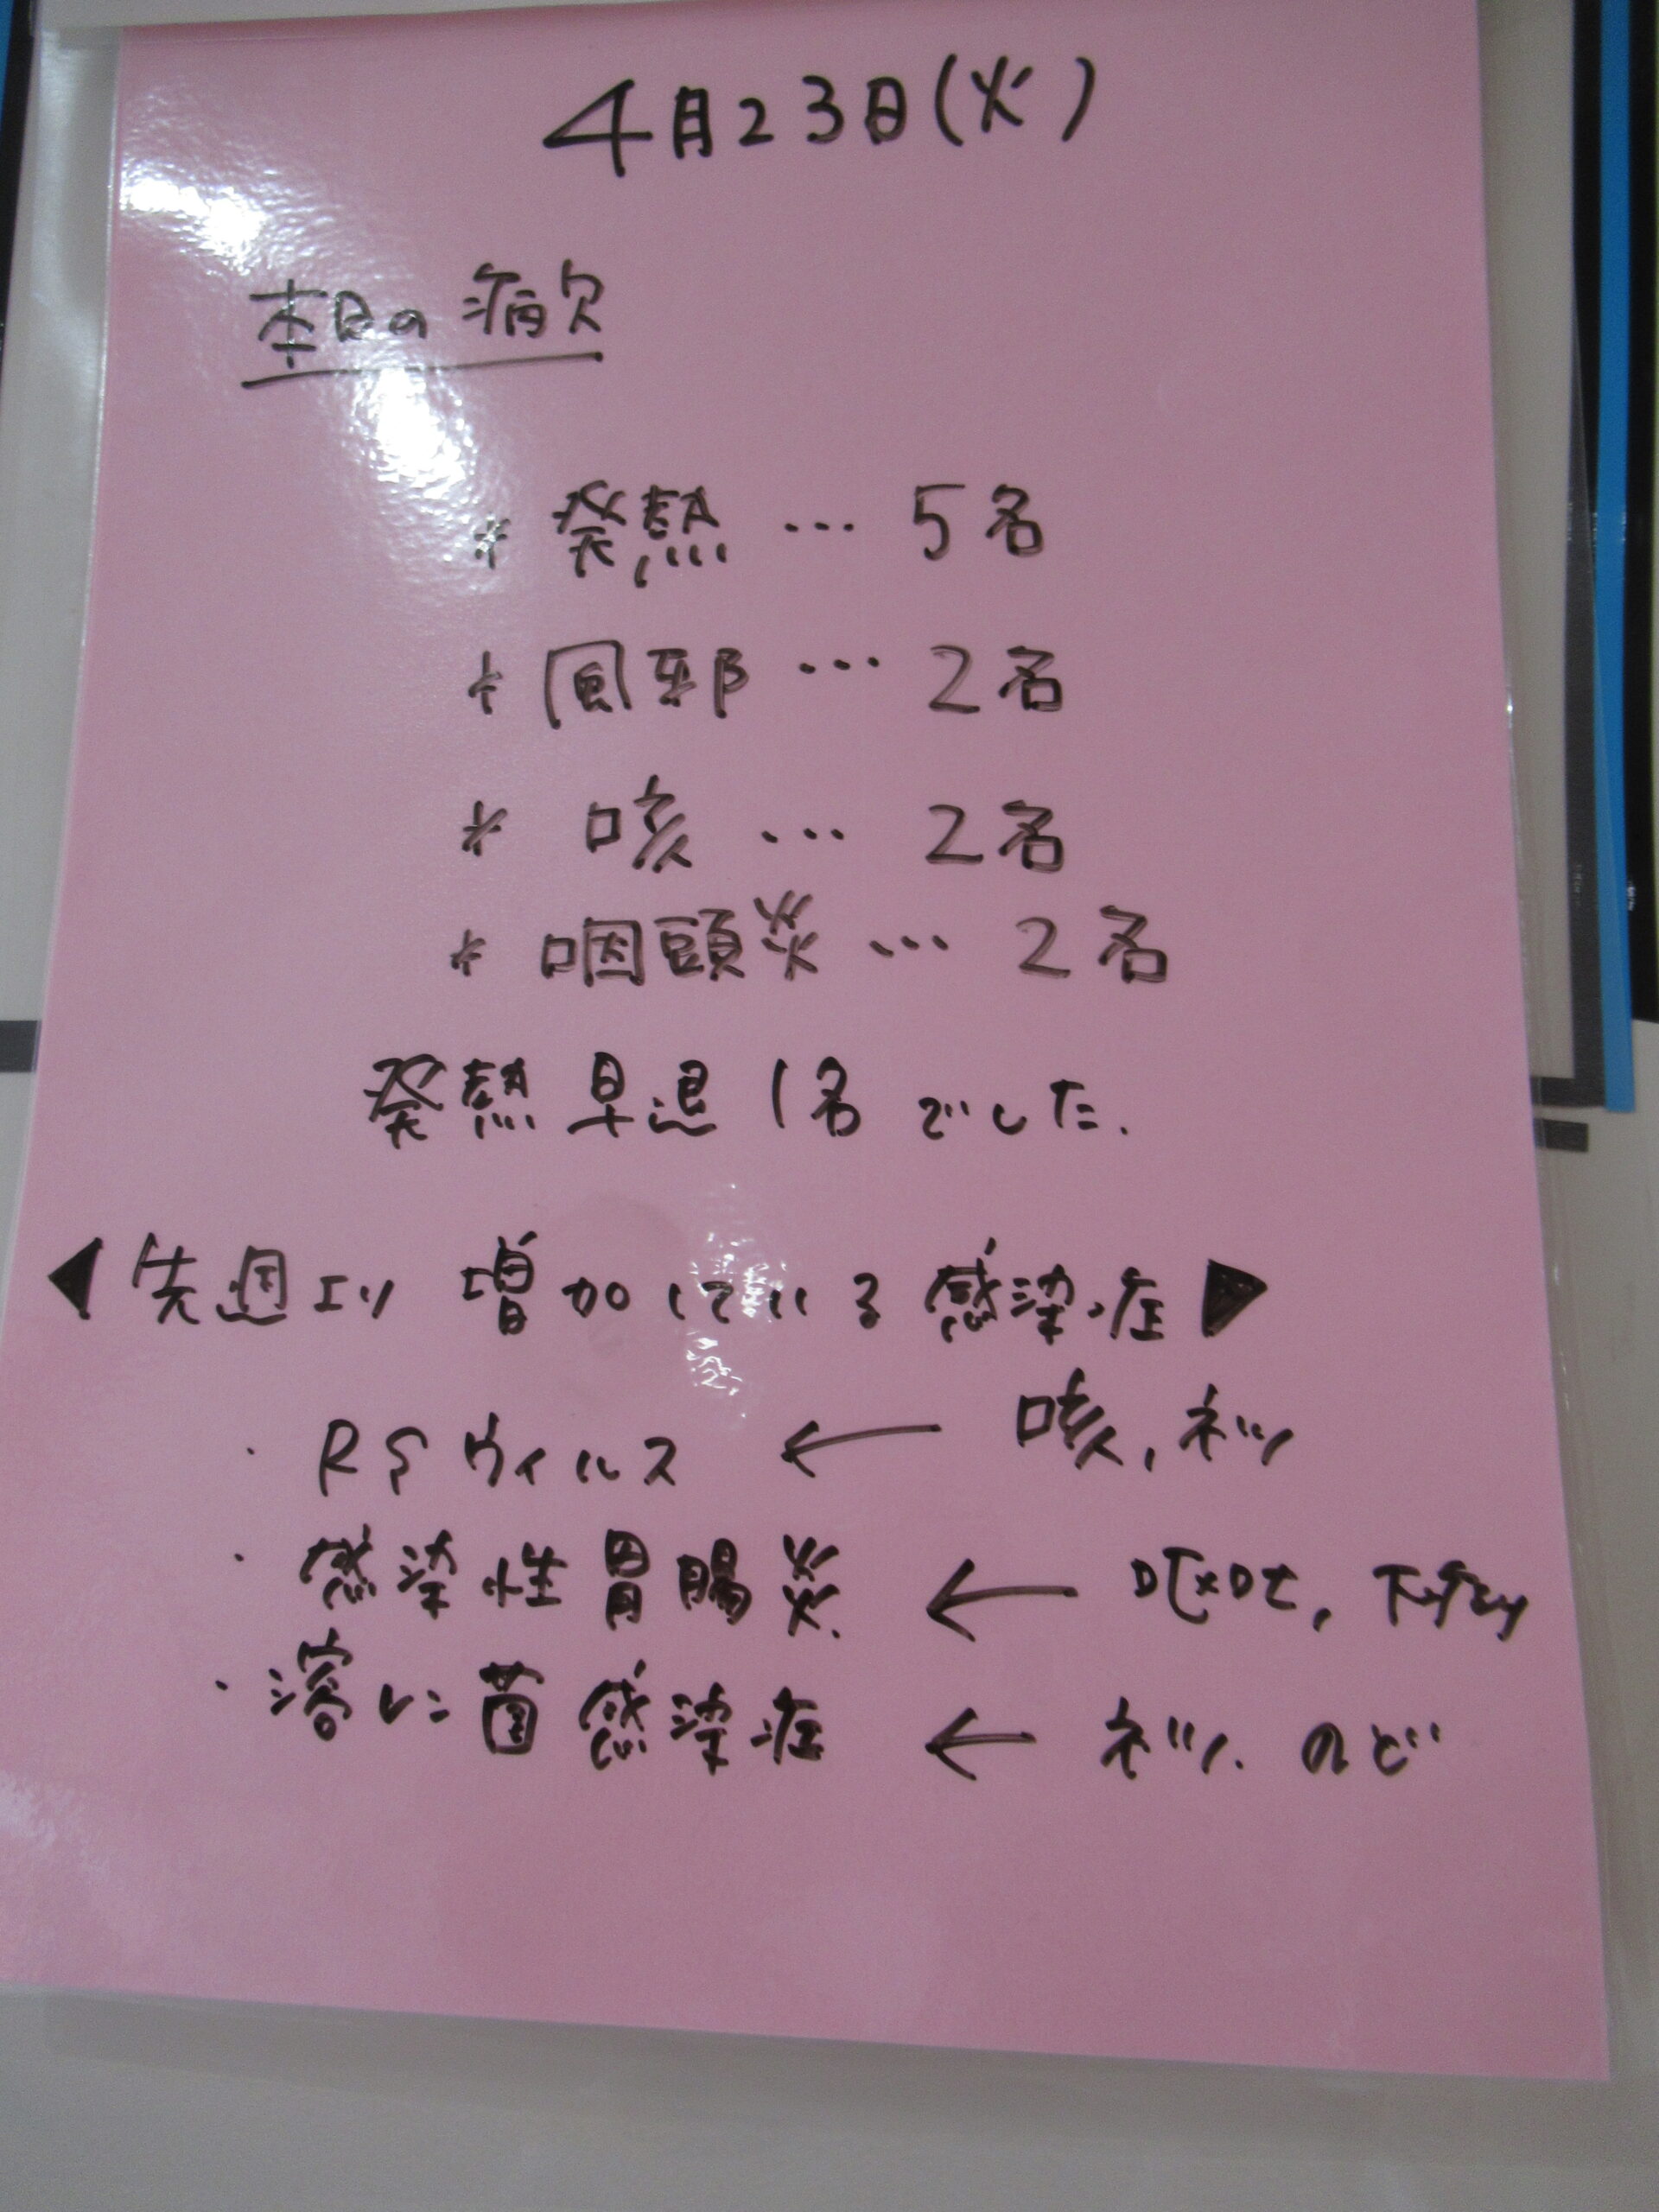 4月23日(火)
本日の病欠
* 発熱 … 5名
* 風邪 … 2名
* 咳 … 2名
* 咽頭炎 … 2名
発熱早退1名でした.
◀先週より増加している感染症▶
・RSウィルス ← 咳, ネツ
・感染性胃腸炎 ← 嘔吐, 下痢
・溶レン菌感染症 ← ネツ. のど